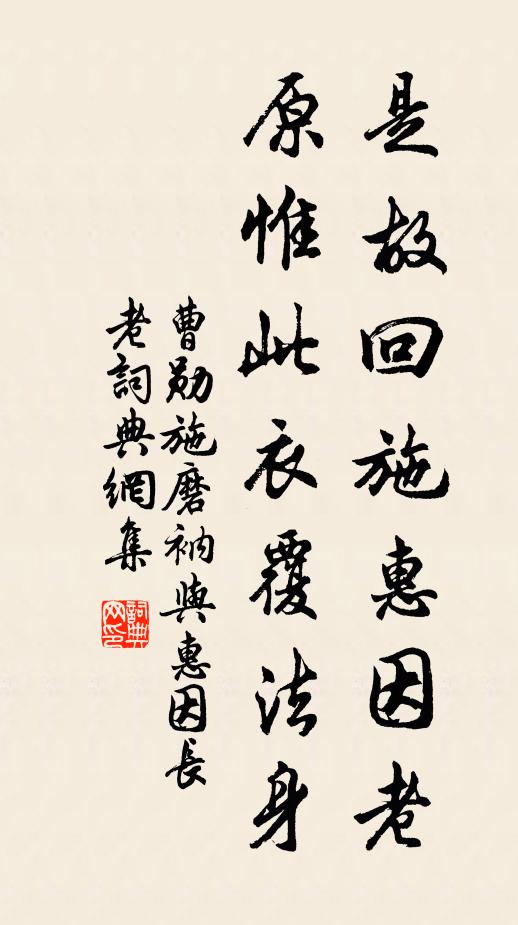 是故回施惠因老
原惟此衣覆法身
曹勛施磨衲與惠因長
老詞典網集
詞典网印